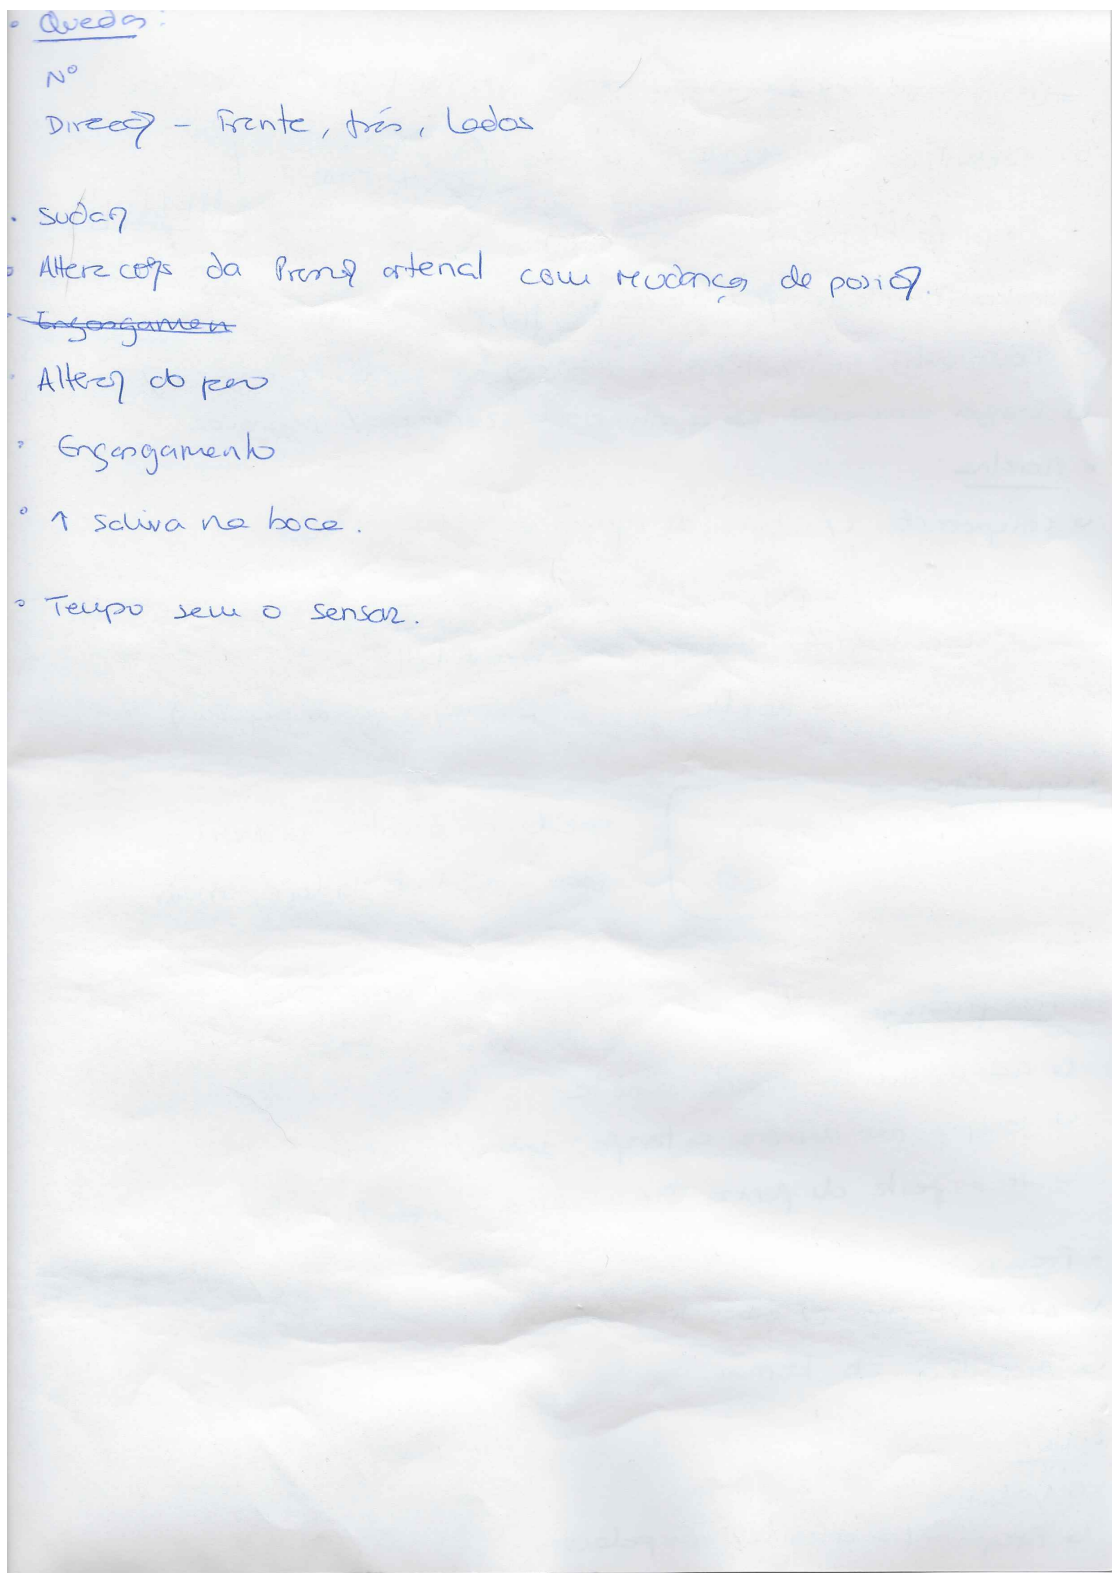 • Quedas:
Nº
Direcç - Frente, trás, Lados
• Sudaç
• Alterações da Pressã arterial com mudança de posiç.
• Engasgamen
• Alteraç do peso
• Engasgamento
• ↑ saliva na boca.
• Tempo sem o sensor.